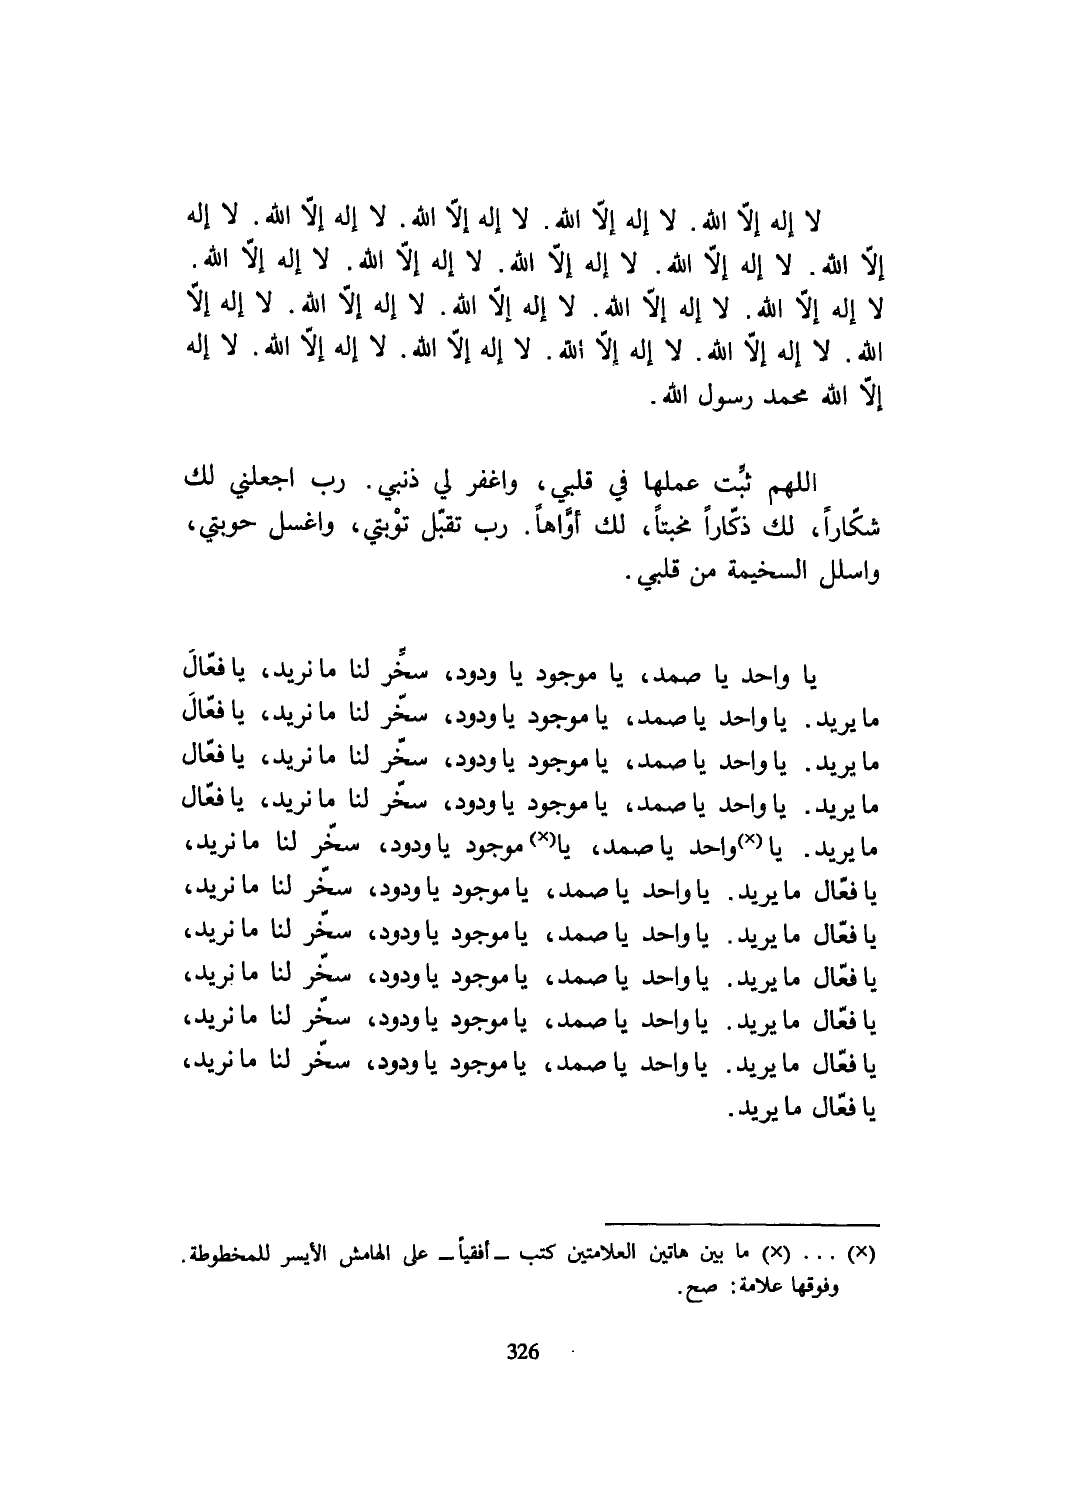 لا إله إلاّ الله. لا إله إلاّ الله. لا إله إلاّ الله. لا إله إلاّ الله. لا إله
إلاّ الله. لا إله إلاّ الله. لا إله إلاّ الله. لا إله إلاّ الله. لا إله إلاّ الله.
لا إله إلاّ الله. لا إله إلاّ الله. لا إله إلاّ الله. لا إله إلاّ الله. لا إله إلاّ
الله. لا إله إلاّ الله. لا إله إلاّ ألله. لا إله إلاّ الله. لا إله إلاّ الله. لا إله
إلاّ الله محمد رسول الله.
اللهم ثبِّت عملها في قلبي، واغفر لي ذنبي. رب اجعلني لك
شكّاراً، لك ذكّاراً مخبتاً، لك أوَّاهاً. رب تقبّل توْبتي، واغسل حوبتي،
واسلل السخيمة من قلبي.
يا واحد يا صمد، يا موجود يا ودود، سخِّر لنا ما نريد، يا فعّالَ
ما يريد. يا واحد يا صمد، يا موجود يا ودود، سخّر لنا ما نريد، يا فعّالَ
ما يريد. يا واحد يا صمد، يا موجود يا ودود، سخّر لنا ما نريد، يا فعّال
ما يريد. يا واحد يا صمد، يا موجود يا ودود، سخّر لنا ما نريد، يا فعّال
ما يريد. يا (×)واحد يا صمد، يا(×) موجود يا ودود، سخّر لنا ما نريد،
يا فعّال ما يريد. يا واحد يا صمد، يا موجود يا ودود، سخّر لنا ما نريد،
يا فعّال ما يريد. يا واحد يا صمد، يا موجود يا ودود، سخّر لنا ما نريد،
يا فعّال ما يريد. يا واحد يا صمد، يا موجود يا ودود، سخّر لنا ما نريد،
يا فعّال ما يريد. يا واحد يا صمد، يا موجود يا ودود، سخّر لنا ما نريد،
يا فعّال ما يريد. يا واحد يا صمد، يا موجود يا ودود، سخّر لنا ما نريد،
يا فعّال ما يريد.
(×) . . . (×) ما بين هاتين العلامتين كتب ـ أفقياً ـ على الهامش الأيسر للمخطوطة.
وفوقها علامة: صح.
326